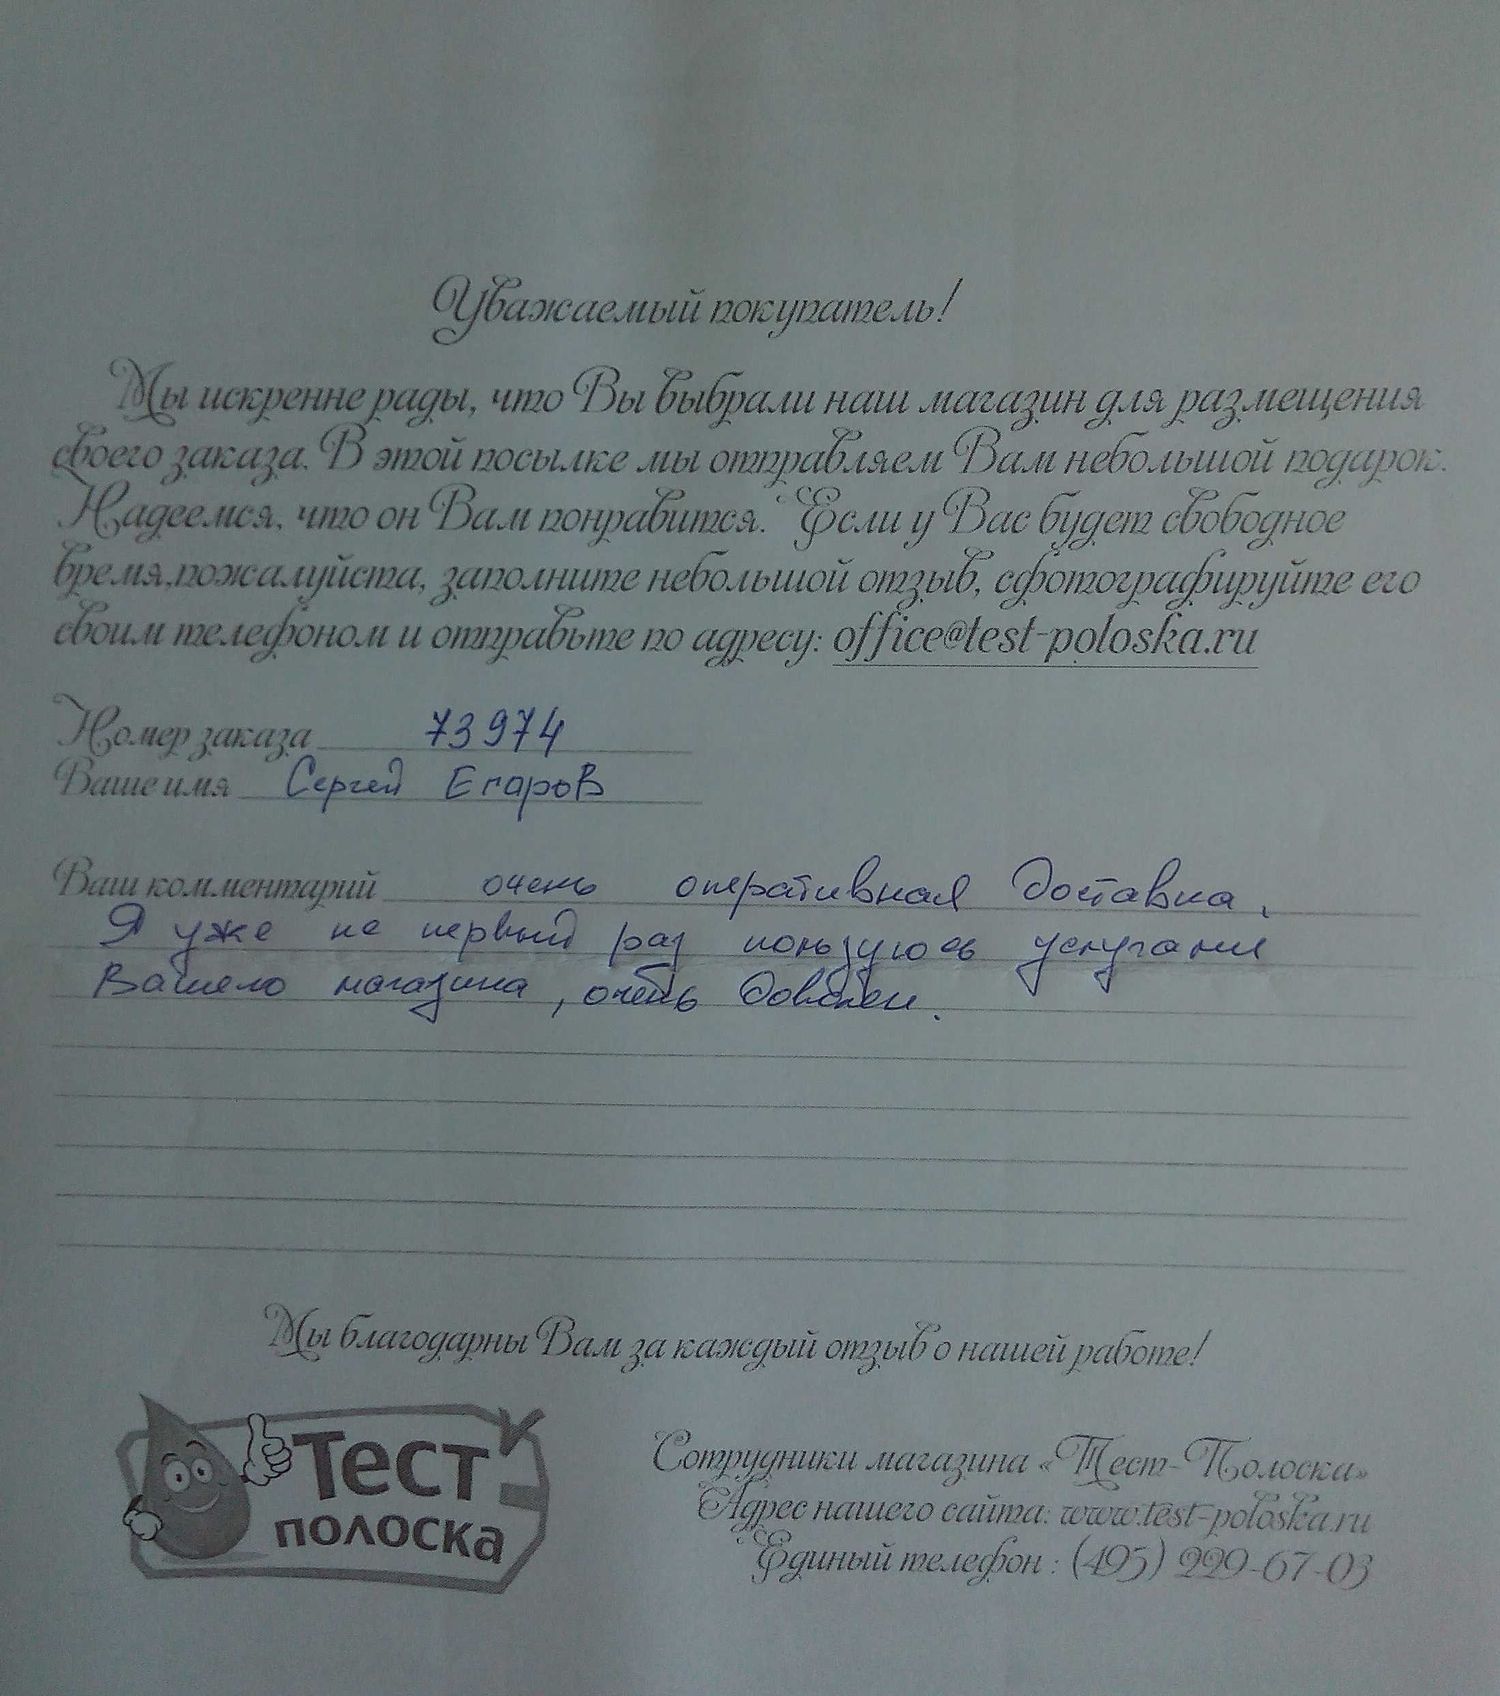 Уважаемый покупатель!
Мы искренне рады, что Вы выбрали наш магазин для размещения
своего заказа. В этой посылке мы отправляем Вам небольшой подарок.
Надеемся, что он Вам понравится. Если у Вас будет свободное
время,пожалуйста, заполните небольшой отзыв, сфотографируйте его
своим телефоном и отправьте по адресу: office@test-poloska.ru
Номер заказа 73974
Ваше имя Сергей Егаров
Ваш комментарий очень оперативная доставка.
Я уже не первый раз пользуюсь услугами
Вашего магазина, очень доволен.
Мы благодарны Вам за каждый отзыв о нашей работе!
Тест
полоска
Сотрудники магазина «Тест-Полоска»
Адрес нашего сайта: www.test-poloska.ru
Единый телефон : (495) 229-67-03